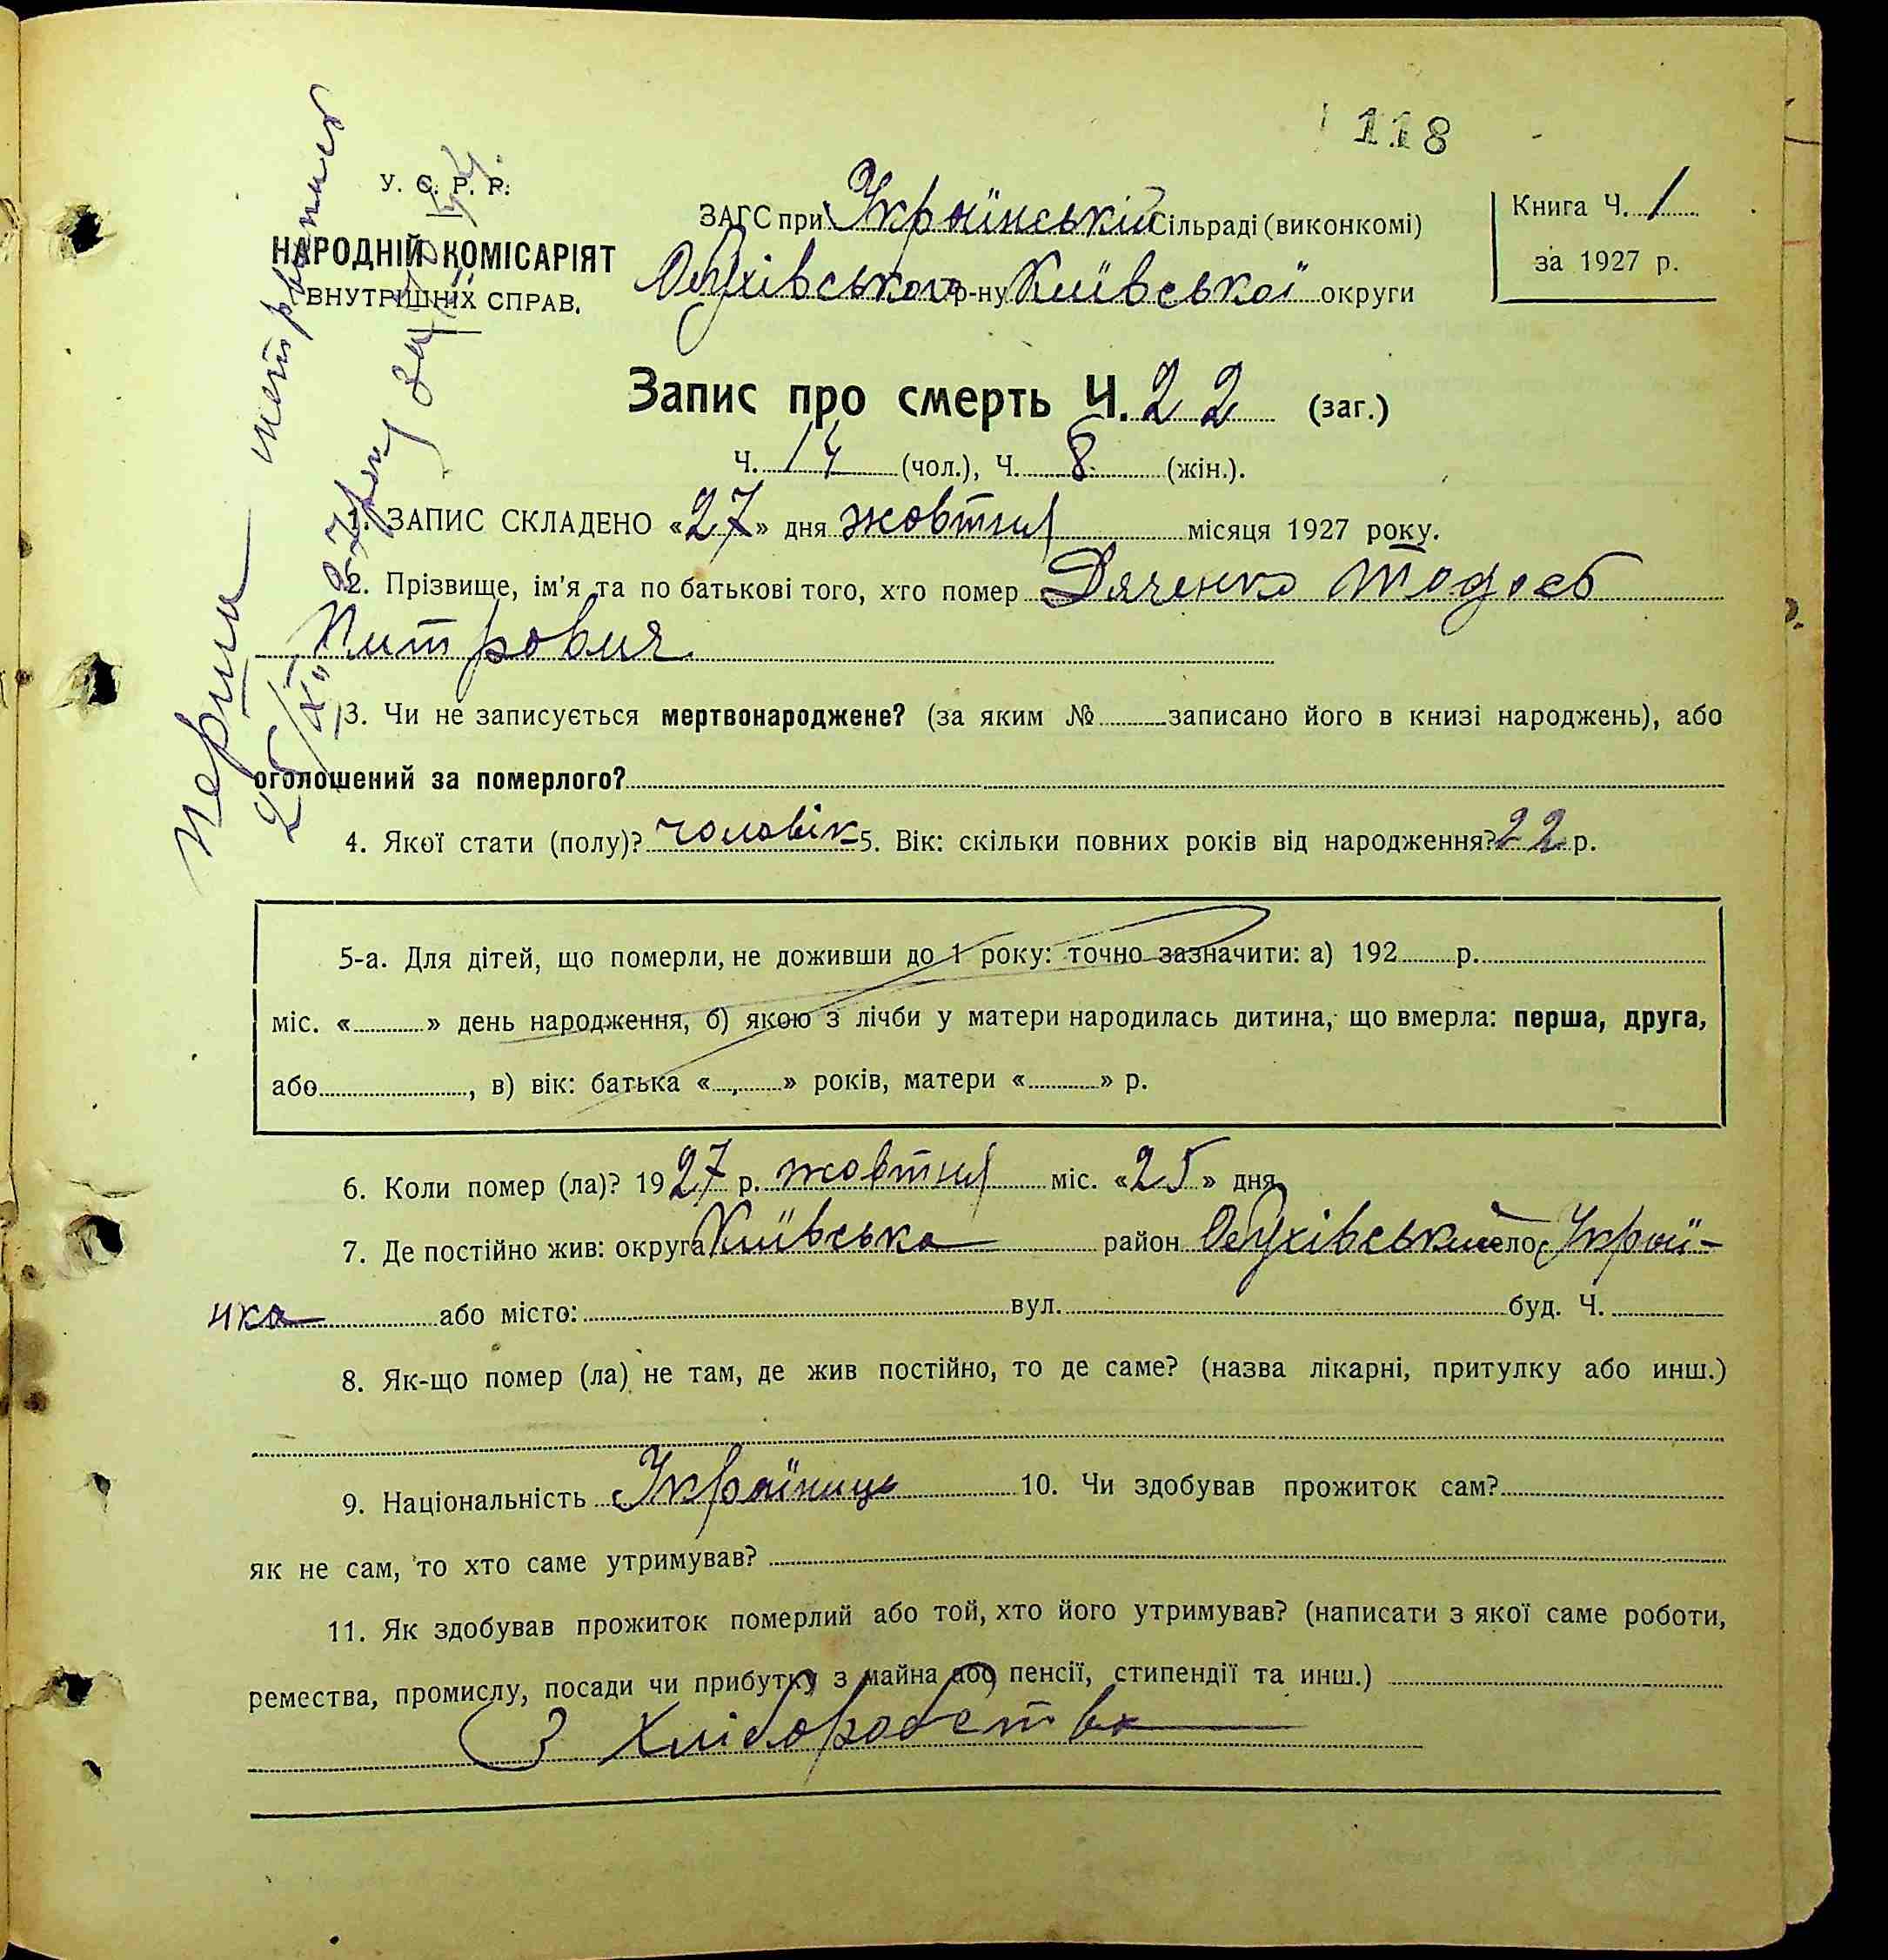 118
У. С. Р. Р.
НАРОДНІЙ КОМІСАРІЯТ
ВНУТРІШНІХ СПРАВ.
ЗАГС при Українській сільраді (виконкомі)
Обухівського р-ну Київської округи
Книга Ч. 1
за 1927 р.
Запис про смерть Ч. 22 (заг.)
Ч. 14 (чол.), Ч. 8 (жін.).
1. ЗАПИС СКЛАДЕНО «27» дня жовтня місяця 1927 року.
2. Прізвище, ім'я та по батькові того, хто помер Дяченко Тодось
Питрович
3. Чи не записується мертвонароджене? (за яким № записано його в книзі народжень), або
оголошений за померлого?
4. Якої стати (полу)? чоловік 5. Вік: скільки повних років від народження? 22 р.
5-а. Для дітей, що померли, не доживши до 1 року: точно зазначити: а) 192 р.
міс. « » день народження, б) якою з лічби у матери народилась дитина, що вмерла: перша, друга,
або , в) вік: батька « » років, матери « » р.
6. Коли помер (ла)? 1927 р. жовтня міс. «25» дня
7. Де постійно жив: округа Київська район Обухівський село Украї-
нка або місто: вул. буд. Ч.
8. Як-що помер (ла) не там, де жив постійно, то де саме? (назва лікарні, притулку або инш.)
9. Національність Україниць 10. Чи здобував прожиток сам?
як не сам, то хто саме утримував?
11. Як здобував прожиток померлий або той, хто його утримував? (написати з якої саме роботи,
ремества, промислу, посади чи прибутку з майна або пенсії, стипендії та инш.)
З Хліборобства